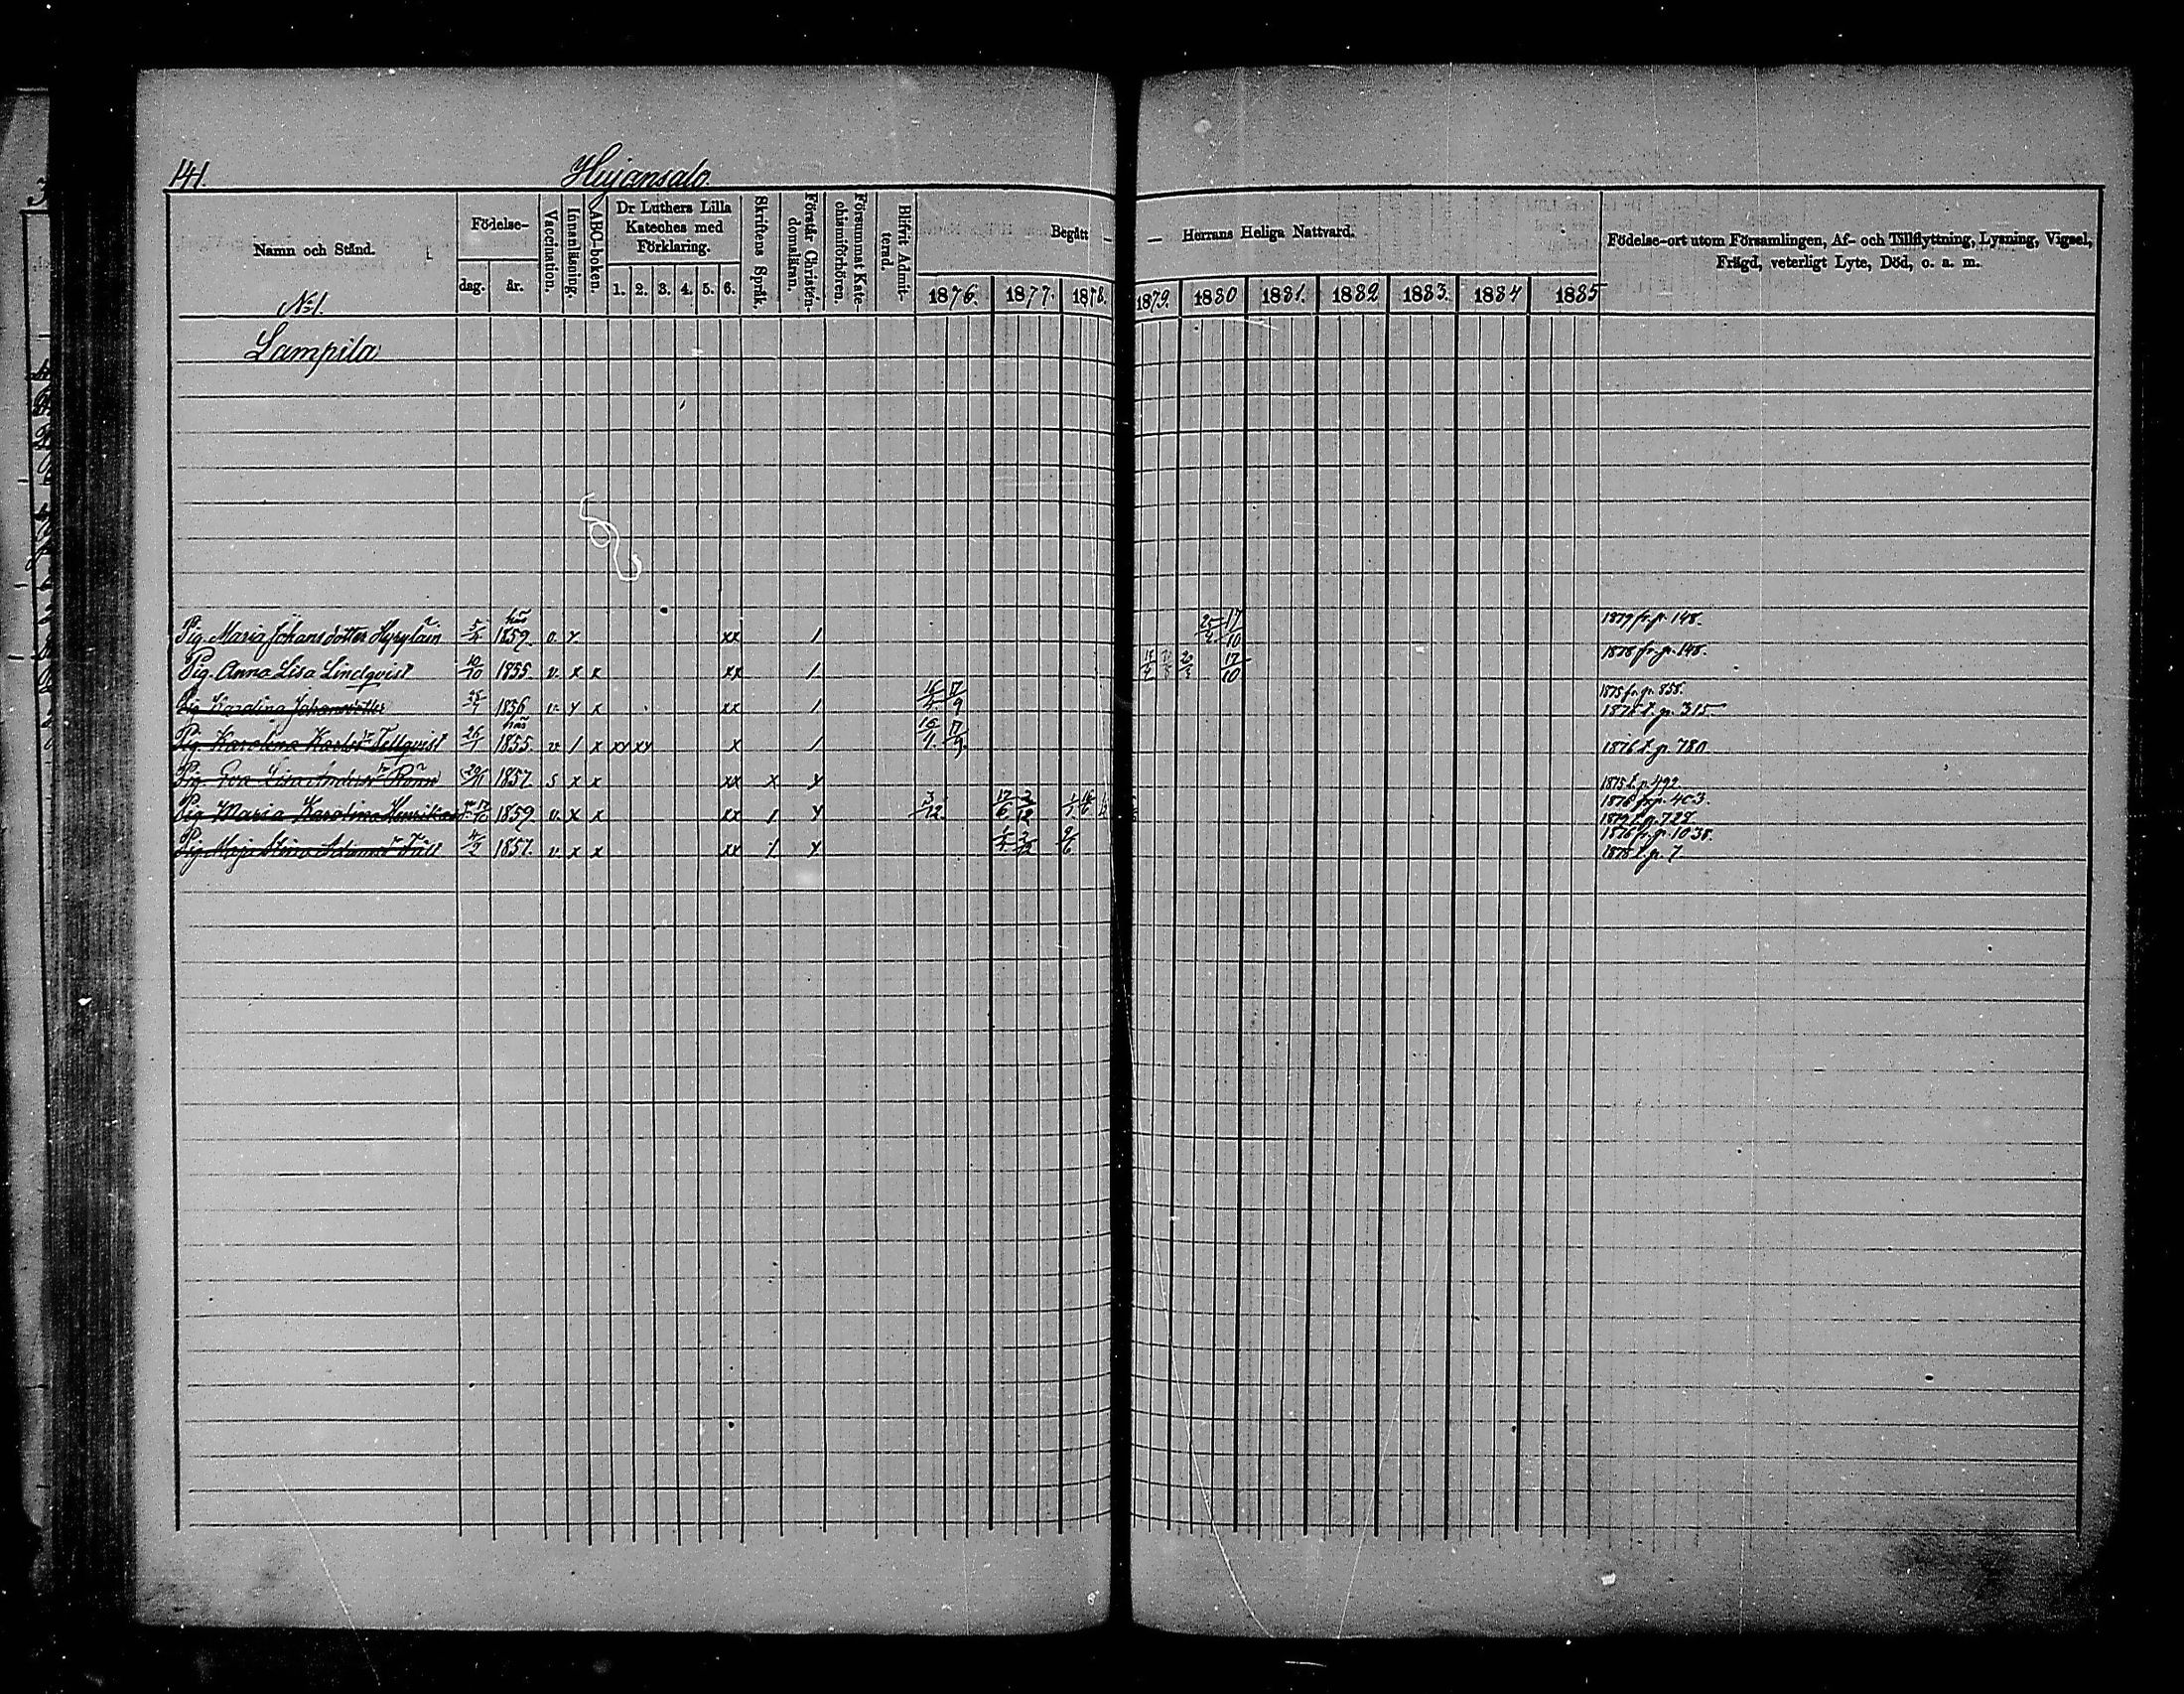 141.
Hujansalo.
Namn och Stånd.
Födelse-
dag.
år.
Vaccination.
Innanläsning.
ABC-boken.
Dr Luthers Lilla
Kateches med
Förklaring.
1. 2. 3. 4. 5. 6.
Skriftens Språk.
Förstår Christen-
domsläran.
Försummat Kate-
chismiförhören.
Blifvit Admit-
terad.
Begått —
— Herrans Heliga Nattvard.
1876. 1877. 1878. 1879. 1880 1881. 1882 1883. 1884 1885
Födelse-ort utom Församlingen, Af- och Tillflyttning, Lysning, Vigsel,
Frägd, veterligt Lyte, Död, o. a. m.
No 1.
Lampila
Pig. Maria Johansdotter 1859. v. xx / 25/4 17/10 1879 fr. p. 148.
Pig. Anna Lisa Lindqvist 10/10 1855. v. x x xx / 17/10 1878 fr. p. 148.
Pig. Karolina Johansdotter 1856 v. x x xx / 16/4 17/9 1875 fr. p. 858.
1876 t. p. 315
Pig. Karolina Karlsdr Tellqvist 26/1 1855. v. / x xx xx x / 16/4. 17/9. 1876 t. p. 780
Pig. Eva Lisa 1857. s x x xx x x 1875 t. p. 492
Pig. Maria Karolina 1859. v. x x xx / x 3/12. 17/6 2/12 1876 fr. p. 403.
1879 t. p. 728
Pig. Maja Stina 4/2 1857. v. x x xx / x 1876 fr. p. 1038.
1878 t. p. 7